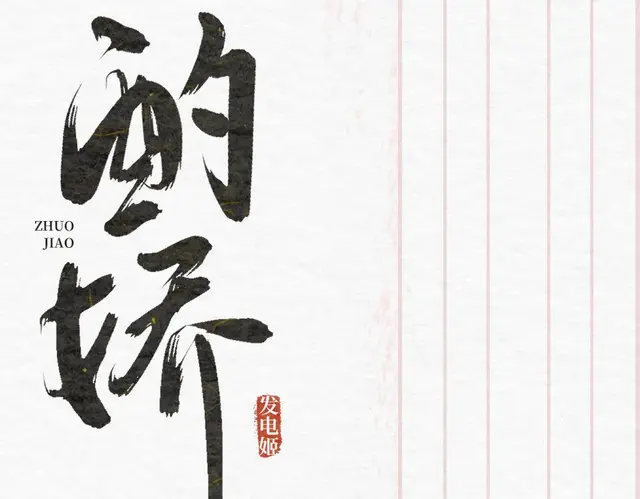 酌娇
ZHUO
JIAO
发电姬